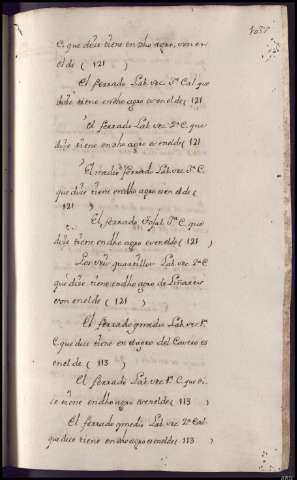 C. que dice tiene en dho agro, con en
el de ( 121 )
El ferrado Lab. vec. 1ª Cal. que
dice tiene en dho agro es en el de ( 121
El ferrado Lab. vec. 2ª C. que
dice tiene en dho agro es en el de ( 121
El medio ferrado Lab. vec. 1ª C.
que dice tiene en dho agro es en el de (
121 )
El ferrado Tojal 1ª C. que
dice tiene en dho agro es en el de ( 121 )
Los tres quartillos Lab. vec. 2ª C
que dice tiene en dho agro de Liñareis
son en el de ( 121 )
El ferrado y medio Lab. vec. 1ª
C. que dice tiene en el agro del es
en el de ( 113 )
El ferrado Lab. vec. 1ª C. que di-
ce tiene en dho agro es en el de ( 113 )
El ferrado y medio Lab. vec. 2ª Cal.
que dice tiene en dho agro es en el de ( 113 )